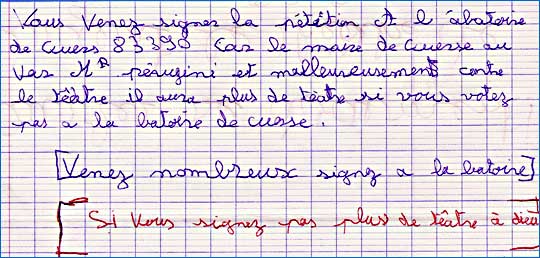 Vous Venez signer la pétition A l'abatoire
de cuers 83390 Car le maire de cuersse au
vas Mr pérugini et malleureusement contre
le téâtre il aura plus de téâtre si vous votez
pas a la batoire de cuersse.
[Venez nombreux signez a la batoire]
[Si vous signez pas plus de téâtre à dieu]